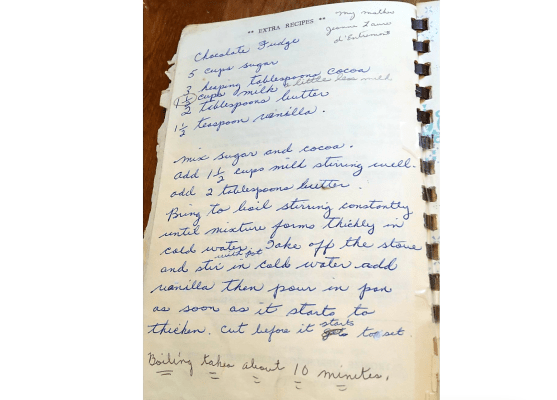 ** EXTRA RECIPES **
my mother
Jeanne Laure
d'Entremont
Chocolate Fudge
5 cups sugar
3 heaping tablespoons cocoa
1 1/2 cups milk a little less milk
2 tablespoons butter
1 1/2 teaspoon vanilla.
mix sugar and cocoa.
add 1 1/2 cups milk stirring well.
add 2 tablespoons butter.
Bring to boil stirring constantly
until mixture forms thickly in
cold water. Take off the stove
with pot
and stir in cold water add
vanilla then pour in pan
as soon as it starts to
thicken. Cut before it starts to set
Boiling takes about 10 minites.